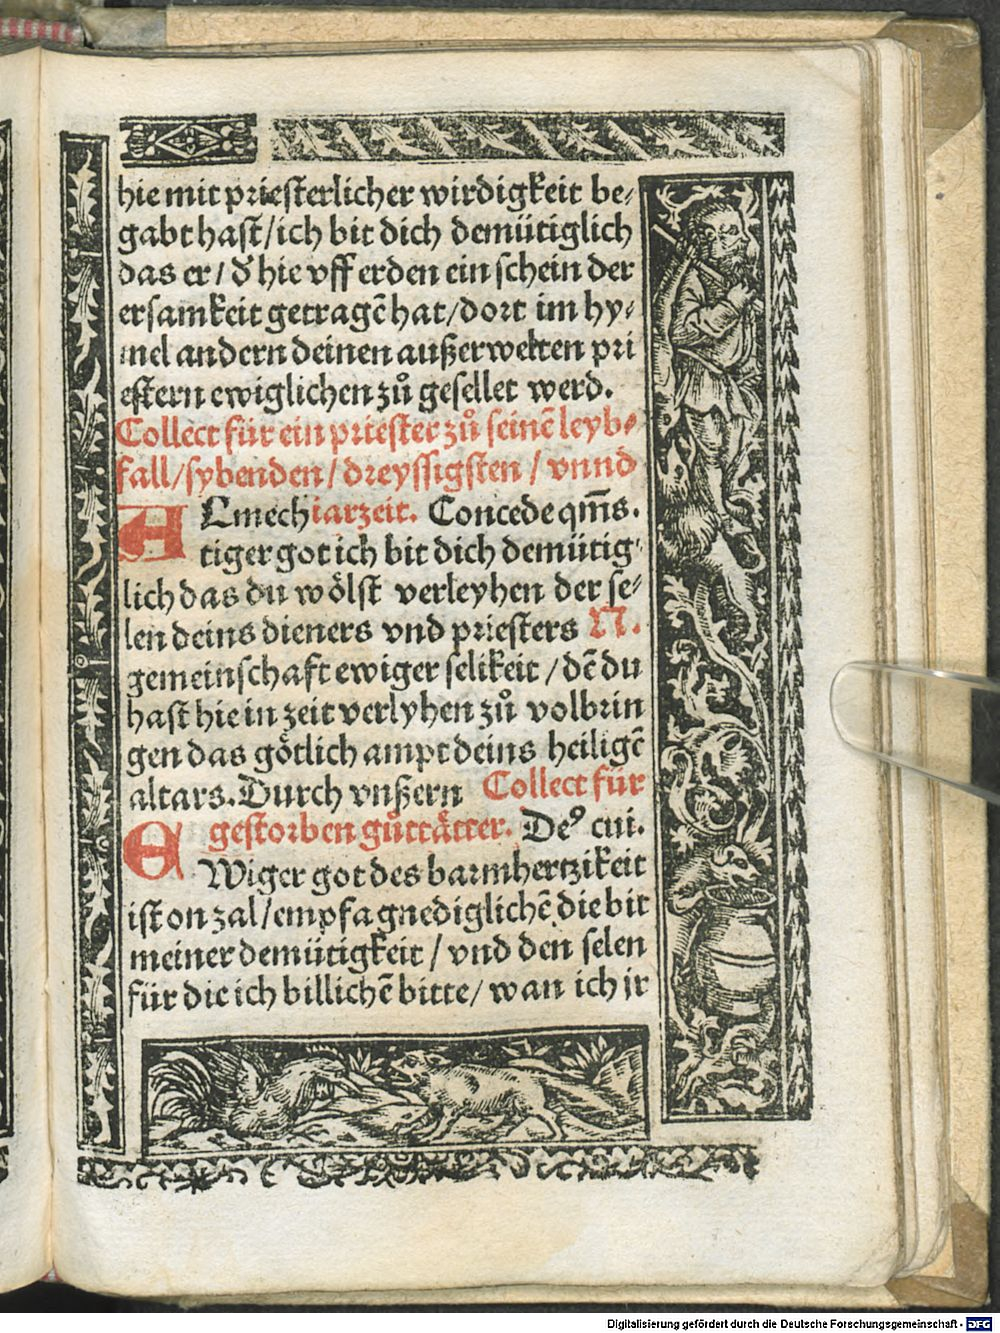 hie mit priesterlicher wirdigkeit be⸗
gabt hast/ich bit dich demütiglich
das er/ d̛ hie vff erden ein schein der
ersamkeit getragē hat/dort im hy⸗
mel andern deinen außerwelten pri
estern ewiglichen zů gesellet werd.
Collect für ein priester zů seinē leyb⸗
fall/sybenden/dreyssigsten/vnnd
ALmech iarzeit. Concede qm̄s.
tiger got ich bit dich demütig⸗
lich das du wölst verleyhen der se⸗
len deins dieners vnd priesters N.
gemeinschaft ewiger selikeit/dē du
hast hie in zeit verlyhen zů volbrin
gen das götlich ampt deins heiligē
altars. Durch vnßern Collect für
gestorben gůttätter. Deꝰ cui.
EWiger got des barmhertzikeit
ist on zal/empfa gnediglichē die bit
meiner demütigkeit/vnd den selen
für die ich billichē bitte/wan ich jr
Digitalisierung gefördert durch die Deutsche Forschungsgemeinschaft - DFG